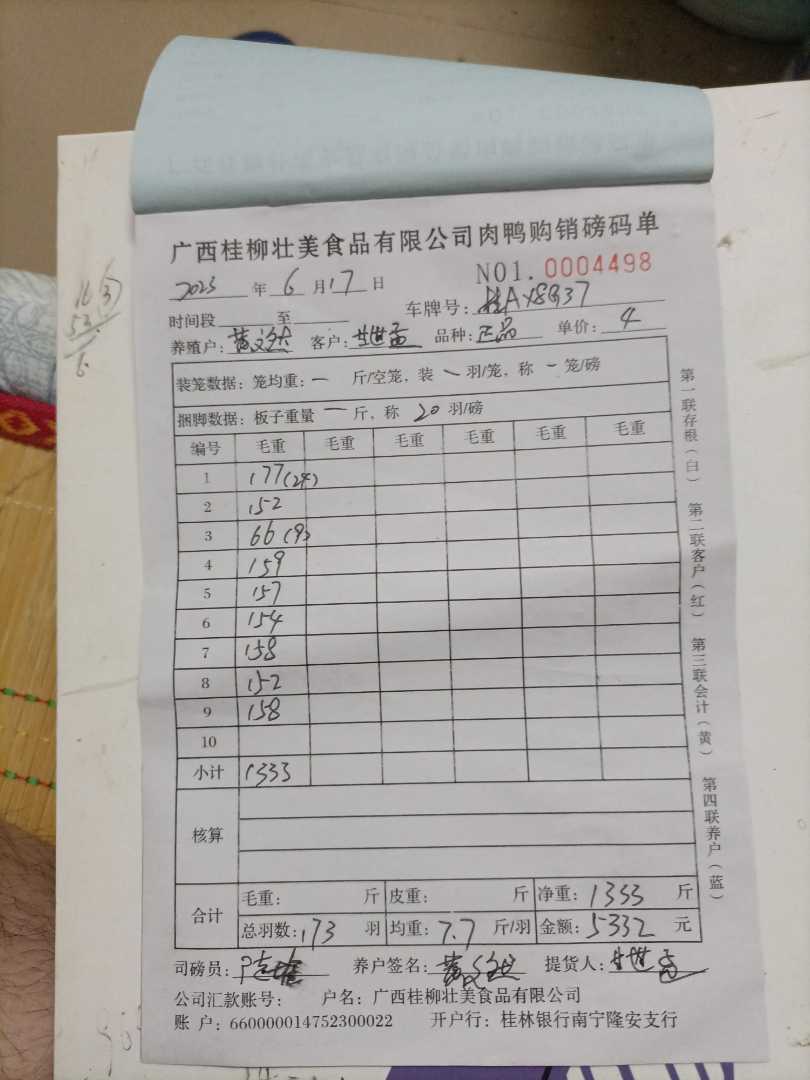 广西桂柳壮美食品有限公司肉鸭购销磅码单
2023 年 6 月 17 日 NO1. 0004498
时间段 至 车牌号: 桂AX8G37
养殖户: 黄 客户: 甘世孟 品种: 正品 单价: 4
装笼数据: 笼均重: 一 斤/空笼, 装 一 羽/笼, 称 一 笼/磅
捆脚数据: 板子重量 一 斤, 称 20 羽/磅
编号 毛重 毛重 毛重 毛重 毛重 毛重
1 177(24)
2 152
3 66(9)
4 159
5 157
6 154
7 158
8 152
9 158
10
小计 1333
核算
合计 毛重: 斤 皮重: 斤 净重: 1333 斤
总羽数: 173 羽 均重: 7.7 斤/羽 金额: 5332 元
司磅员: 养户签名: 黄 提货人: 甘世孟
公司汇款账号: 户名: 广西桂柳壮美食品有限公司
账 户: 660000014752300022 开户行: 桂林银行南宁隆安支行
第一联存根(白) 第二联客户(红) 第三联会计(黄) 第四联养户(蓝)